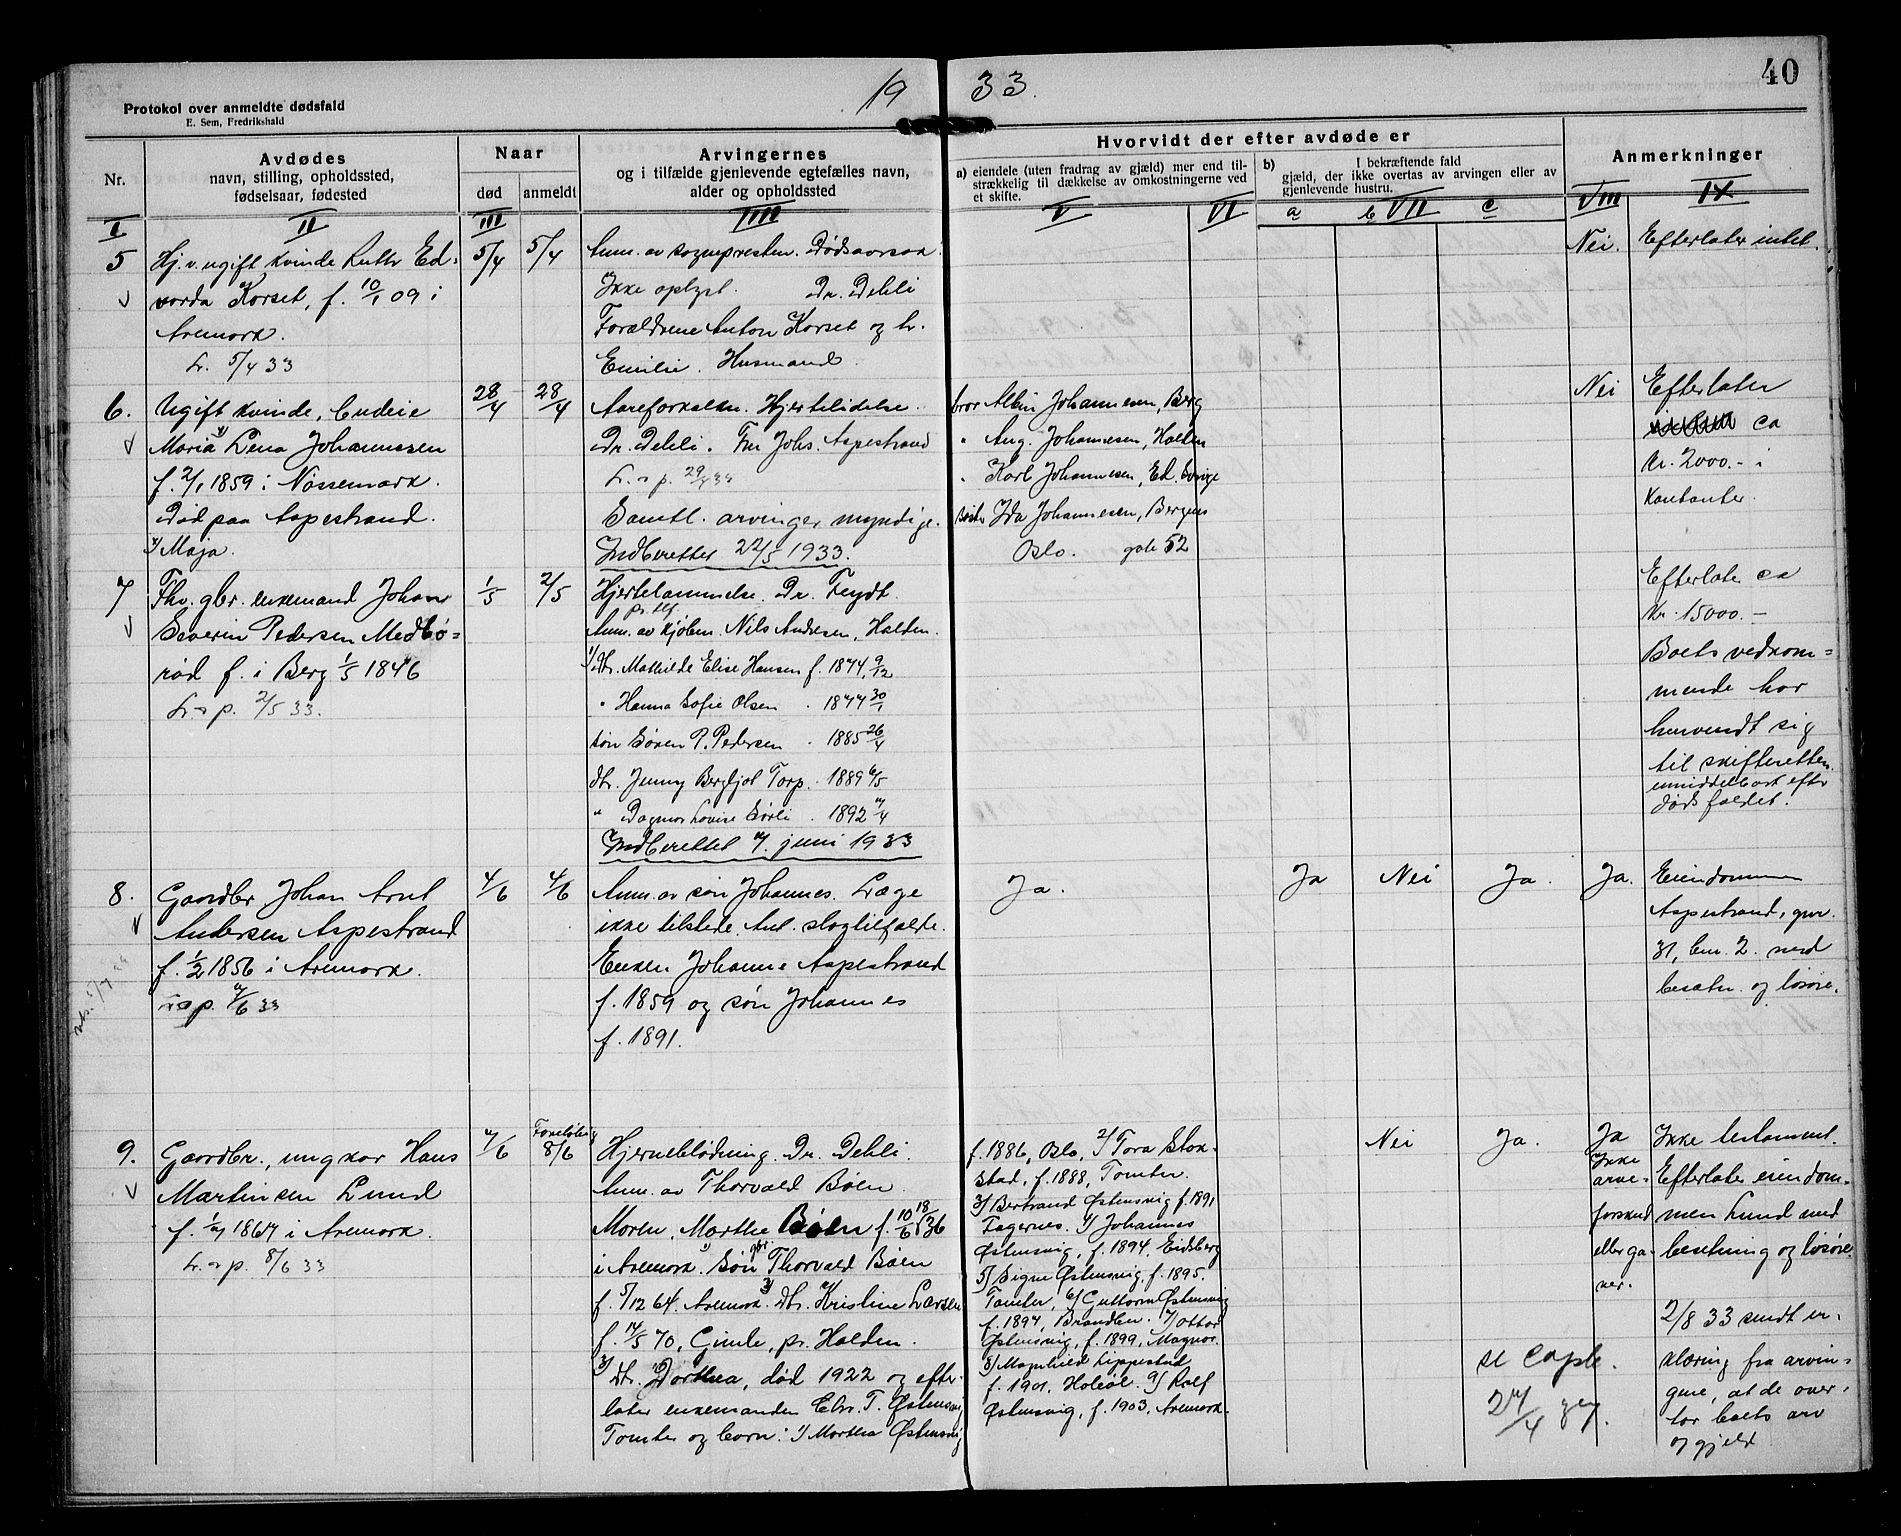 19 33.
40
Protokol over anmeldte dødsfald
E. Sem, Fredrikshald
Nr.
Avdødes
navn, stilling, opholdssted,
fødselsaar, fødested
Naar
død
anmeldt
Arvingernes
og i tilfælde gjenlevende egtefælles navn,
alder og opholdssted
Hvorvidt der efter avdøde er
a) eiendele (uten fradrag av gjæld) mer end til-
strækkelig til dækkelse av omkostningerne ved
et skifte.
b) I bekræftende fald
gjæld, der ikke overtas av arvingen eller av
gjenlevende hustru.
Anmerkninger
I II III IIII V VI a b VII c VIII IX
5
Hj.v. ugift kvinde Ruth Ed-
varda Korset, f. 10/1 09 i
Aremark.
5/4 33
5/4
5/4
Anm. av sognepresten. Dødsaarsak
Ikke oplyst. Dr. Dehli
Forældrene Anton Korset og h.
Emilie. Husmand
Nei.
Efterlater intet.
6.
Ugift kvinde,
Maria 1) Lena Johannesen
f. 2/1 1859 i Nössemark.
Död paa Aspestrand.
1) Maja.
28/4
28/4
Aareforkalkn. Hjertelidelse.
Dr. Dehli. Fru Johs. Aspestrand
29/4 33
Samtl. arvinger myndige.
Indberettet 22/5 1933.
bror Albin Johannesen, Berg
" Aug. Johannesen, Halden
" Karl Johannesen, Ed. Sverige
Ida Johannesen, Bergens
Oslo. gate 52
Nei
Efterlater
ca
Kr. 2000.- i
kontanter.
7
Fhv. gbr. enkemand Johan
Severin Pedersen Medbö-
röd f. i Berg 1/5 1846
2/5 33.
1/5
2/5
Hjertelammelse. Dr. Feydt.
pr. tlf.
Anm. av kjöbm. Nils Andresen, Halden.
1) Dtr. Mathilde Elise Hansen f. 1874 9/12
" Hanna Sofie Olsen . 1877 30/1
sön Sören P. Pedersen . 1885 26/4
dtr. Jenny Bergljot Torp . 1889 6/5
" Dagmar Lovise Sörli . 1892 7/4
Indberettet 7. juni 1933
Efterlater ca
Kr. 15000.-
Boets vedkom-
mende har
henvendt sig
til skifteretten
umiddelbart efter
dödsfaldet.
8.
Gaardbr Johan Arnt
Andersen Aspestrand
f. 1/2 1856 i Aremark.
7/6 33
4/6
4/6
Anm. av sön Johannes. Læge
ikke tilstede. Ant. slagtilfælde.
Enken Johanne Aspestrand
f. 1859 og sön Johannes
f. 1891.
Ja.
Ja
Nei
Ja.
Ja.
Eiendommen
Aspestrand, gnr.
31, bnr. 2. med
besætn. og lösöre.
9.
Gaardbr., ungkar Hans
Martinsen Lund
f. 1/7 1867 i Aremark.
8/6 33
7/6
Foreløbig
8/6
Hjerneblödning. Dr. Dehli.
Anm. av Thorvald Böen
Moren, Marthe Böen f. 10/6 1836
i Aremark. 1) Sön gbr. Thorvald Böen
f. 5/12 64. Aremark. 2) Dtr. Kristine Larsen
f. 14/5 70, Gimle, pr. Halden.
3) Dtr. Dorthea, död 1922 og efter-
later enkemanden Chr. T. Östensvig
Tomter og barn: 1) Martha Östensvig
f. 1886, Oslo, 2) Tora Stok-
stad, f. 1888, Tomter.
3) Bertrand Östensvig f. 1891
Fagernes. 4) Johannes
Östensvig, f. 1894, Eidsberg
5) Signe Östensvig, f. 1895.
Tomter, 6) Guttorm Östensvig
f. 1897, Brandbu. 7) Ottar
Östensvig, f. 1899, Magnor.
8) Magnhild Lippestad
f. 1901, Holöl. 9) Rolf
Östensvig, f. 1903, Aremark.
Nei
Ja.
Ja
Ikke
arve-
forskud
eller ga-
ver.
Ikke testament.
Efterlater eiendom-
men Lund med
besetning og lösöre
2/8 33 sendt er-
klæring fra arvin-
gene, at de over-
tar boets arv
og gjeld
27/4